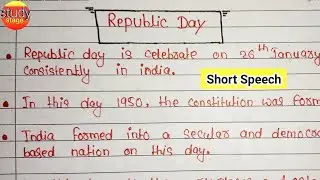 study
stage
Republic Day
• Republic day is celebrate on 26th January
consistently in india.
Short Speech
• In this day 1950, the constitution was form
• India formed into a secular and democra
based nation on this day.